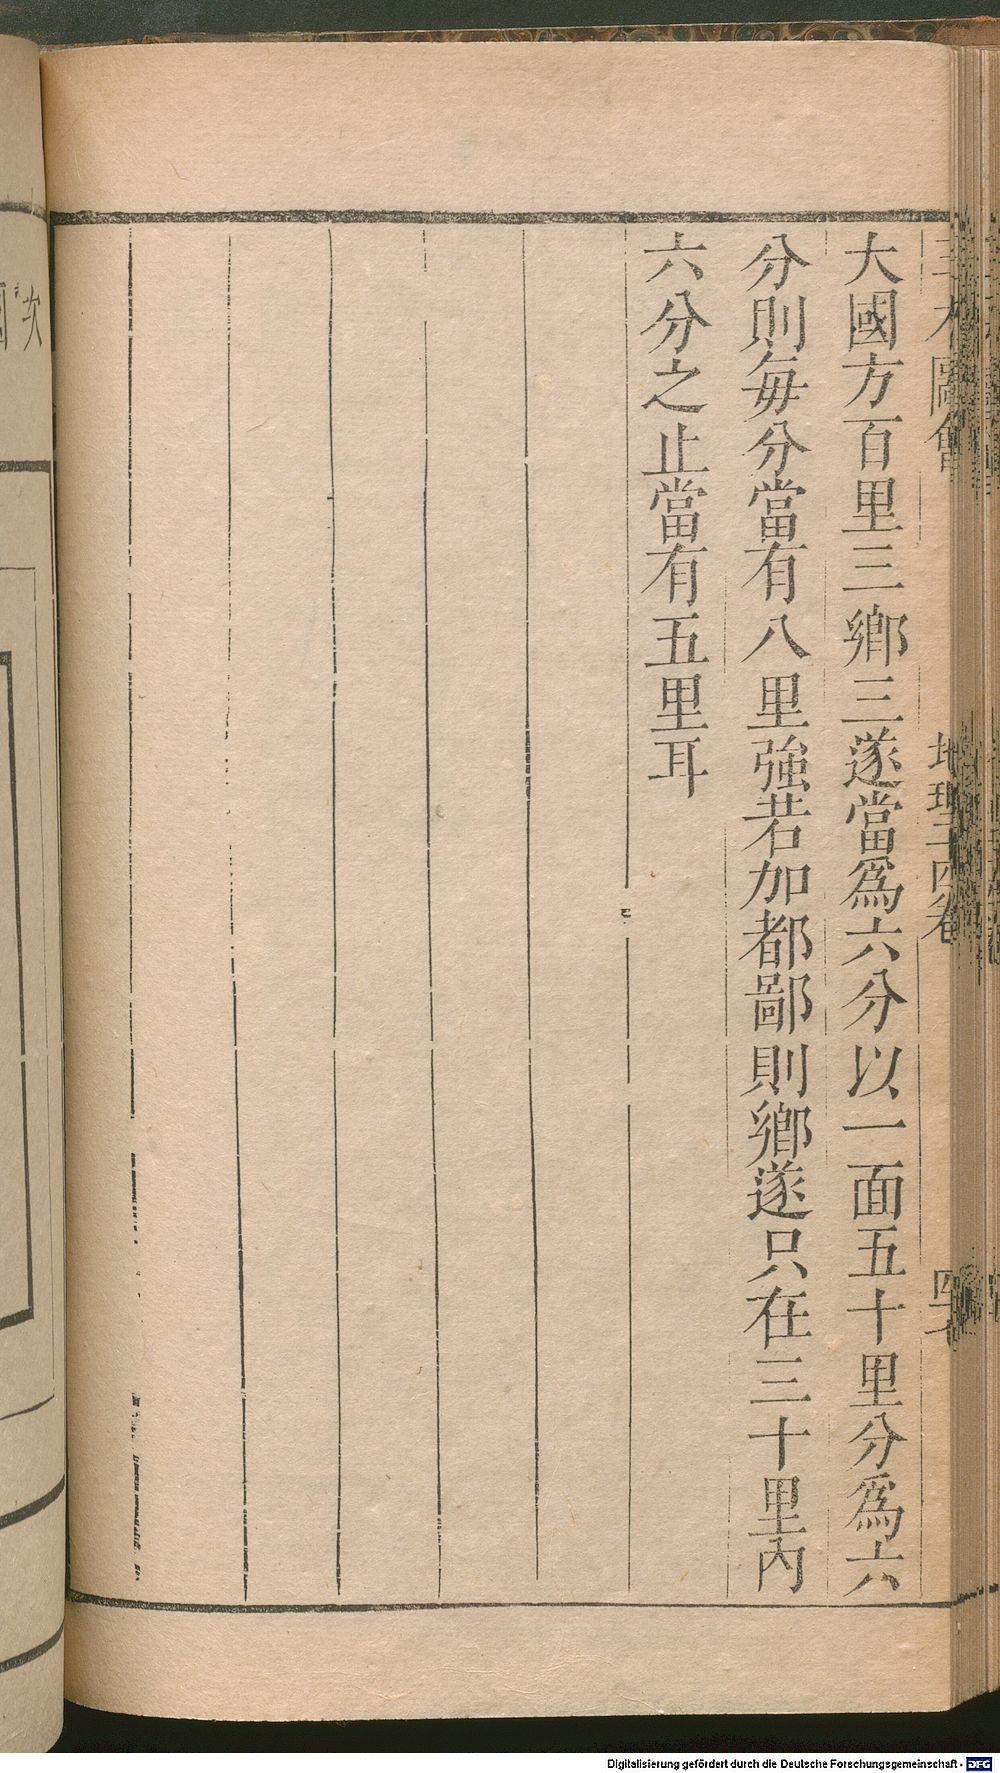 大國方百里三鄉三遂當爲六分以一面五十里分爲六
分則每分當有八里強若加都鄙則鄉遂只在三十里內
六分之止當有五里耳
次
Digitalisierung gefördert durch die Deutsche Forschungsgemeinschaft - DFG